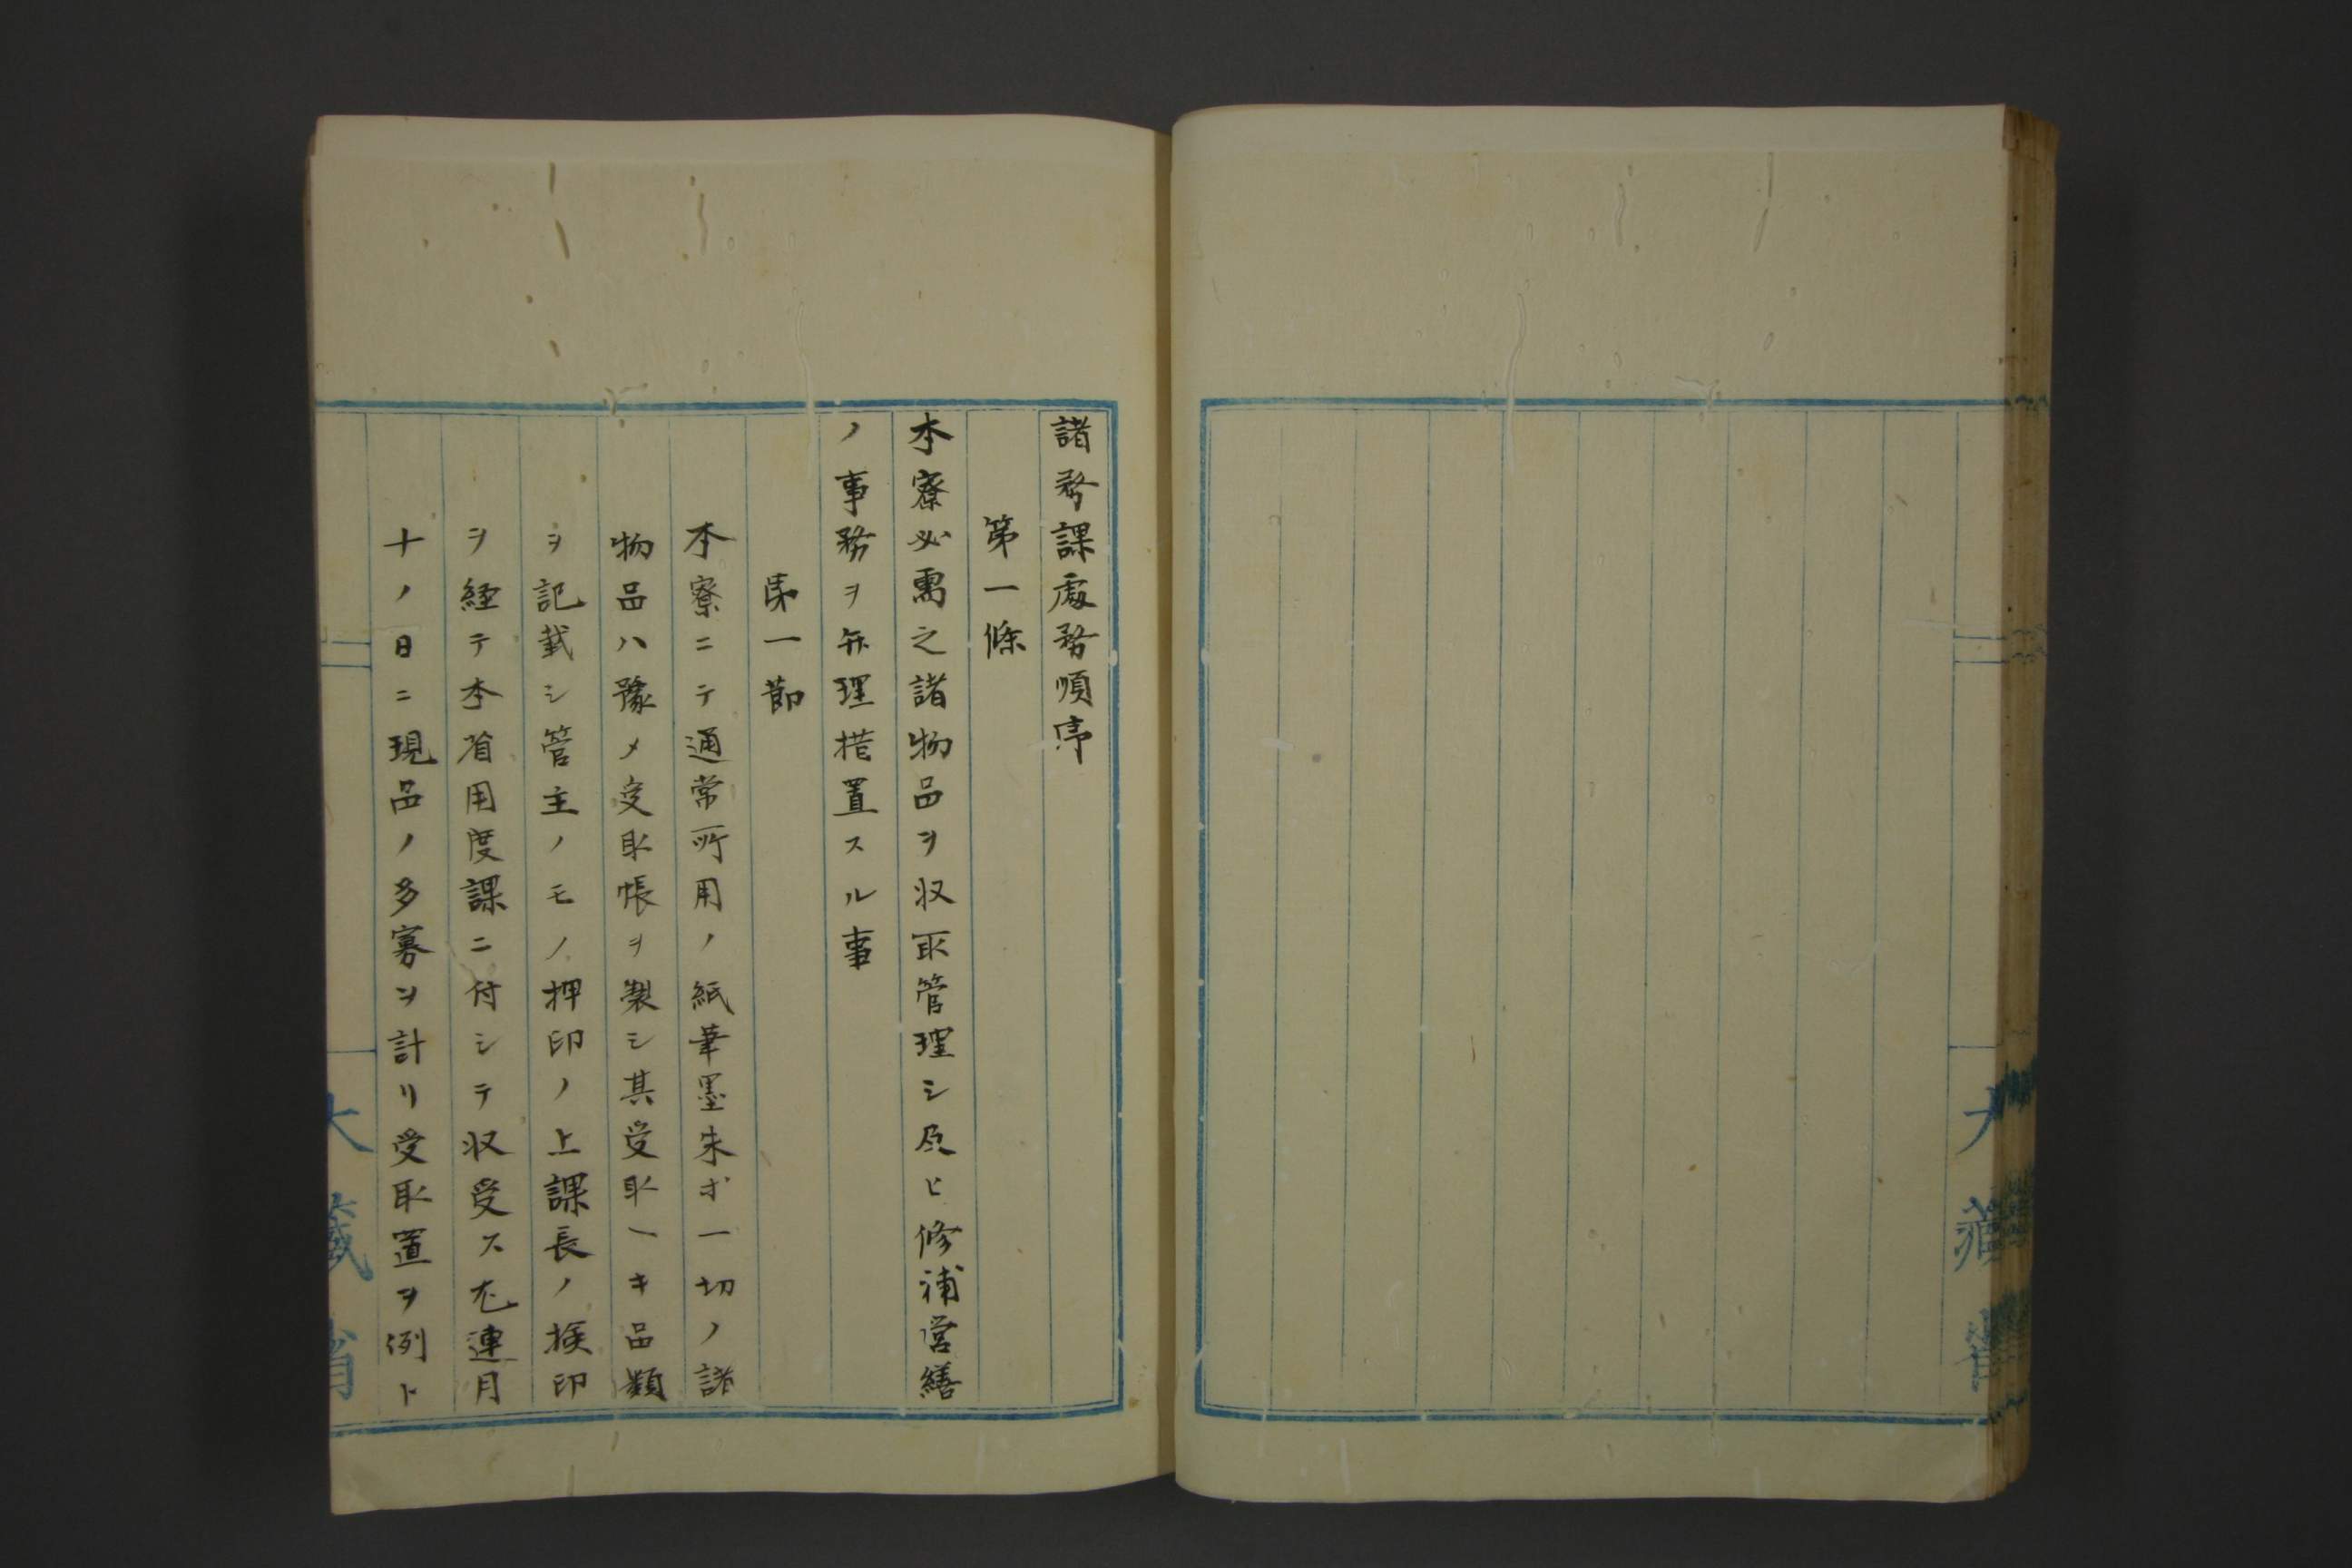 諸務課處務順序
第一條
本寮必需之諸物品ヲ収取管理シ及ヒ修補営繕
ノ事務ヲ弁理措置スル事
第一節
本寮ニテ通常所用ノ紙筆墨朱才一切ノ諸
物品ハ豫メ受取帳ヲ製シ其受取ヘキ品類
ヲ記載シ管主ノモノ押印ノ上課長ノ検印
ヲ経テ本省用度課ニ付シテ収受ス尤連月
十ノ日ニ現品ノ多寡ヲ計リ受取置ヲ例ト
大藏省
大藏省